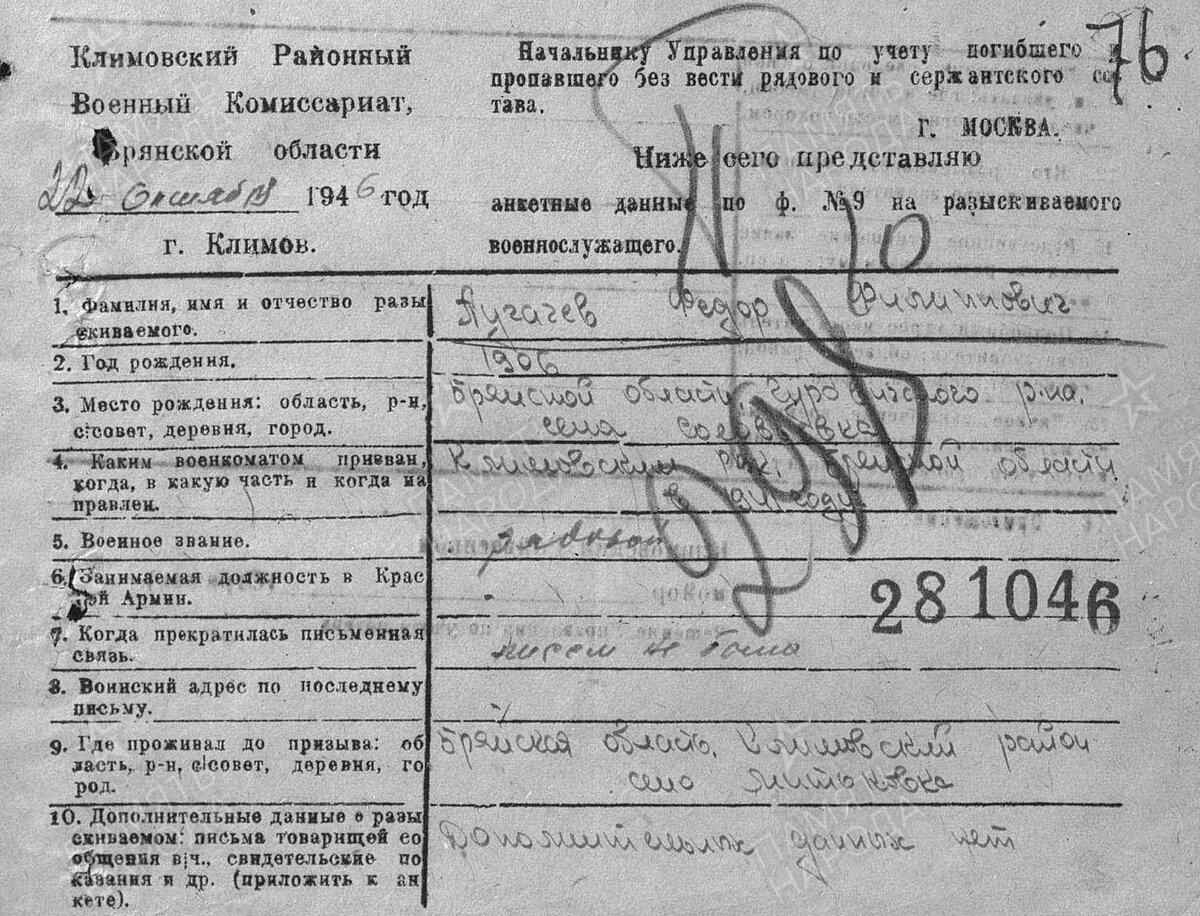 Климовский Районный
Военный Комиссариат,
Брянской области
22 Октября 1946 год
г. Климов.
Начальнику Управления по учету погибшего и
пропавшего без вести рядового и сержантского сос
тава.
г. МОСКВА.
Ниже сего представляю
анкетные данные по ф. №9 на разыскиваемого
военнослужащего.
76
1. Фамилия, имя и отчество разы
скиваемого.
Пугачев Федор Филиппович
2. Год рождения.
1906
3. Место рождения: область, р-н,
с|совет, деревня, город.
Брянской область, р-на,
села
4. Каким военкоматом призван,
когда, в какую часть и когда на
правлен.
Климовским рвк, Брянской области
в 1941 году
5. Военное звание.
рядовой
6. Занимаемая должность в Крас
ной Армии.
281046
7. Когда прекратилась письменная
связь.
писем не было
8. Воинский адрес по последнему
письму.
9. Где проживал до призыва: об
ласть, р-н, с|совет, деревня, го
род.
Брянская область, Климовский район
село Митьковка
10. Дополнительные данные о разы
скиваемом: письма товарищей со
общения в|ч., свидетельские по
казания и др. (приложить к ан
кете).
Дополнительных данных нет